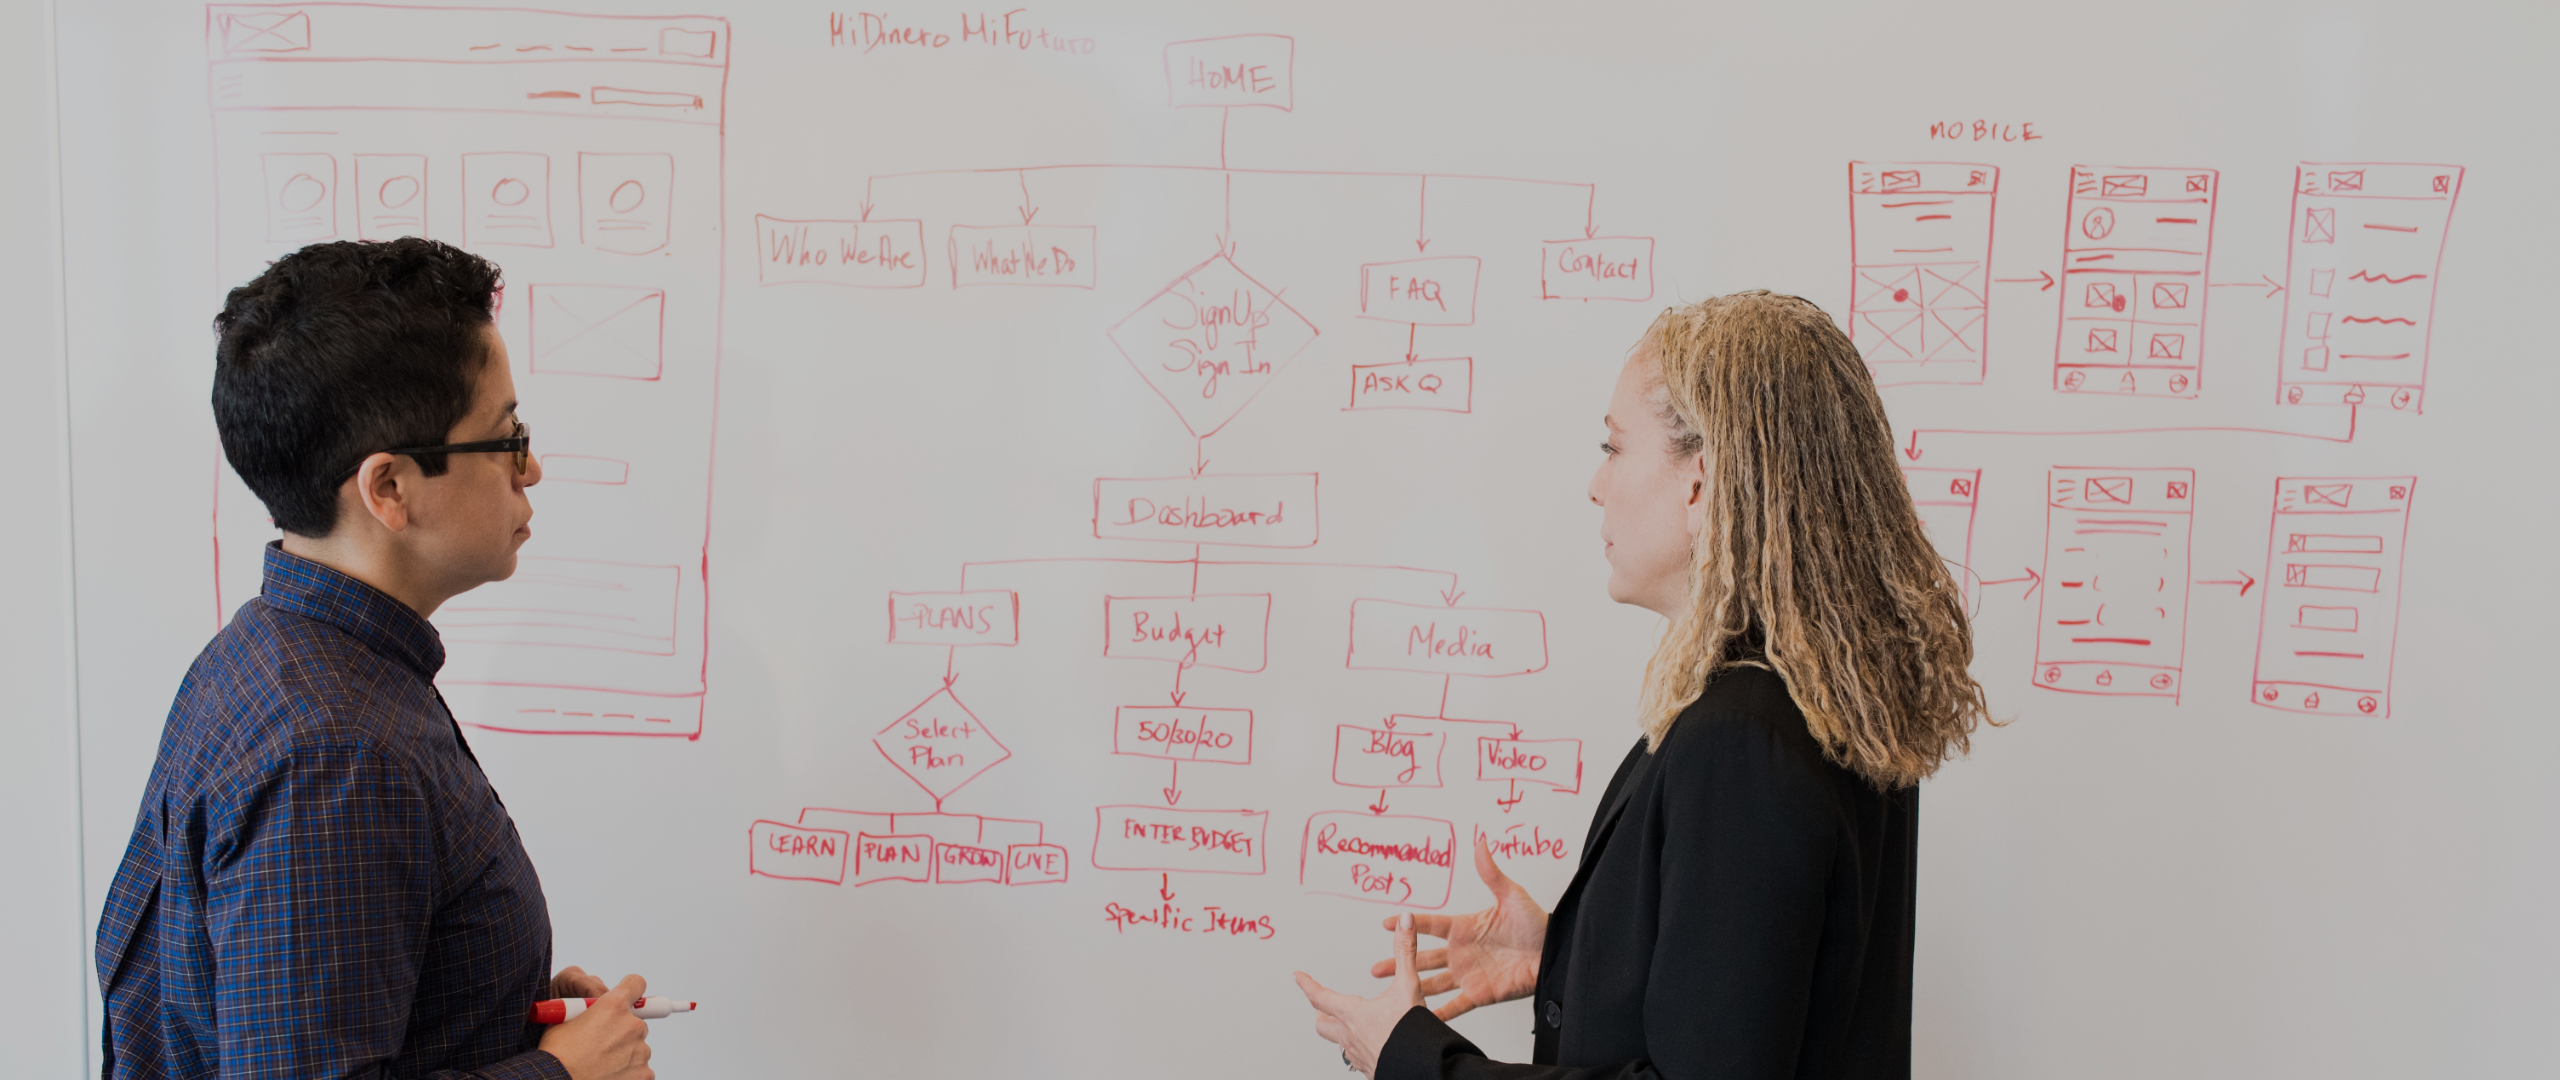 MiDinero MiFuturo
HOME
MOBILE
Who We Are
What We Do
Sign Up
Sign In
FAQ
Contact
ASK Q
Dashboard
PLANS
Budget
Media
Select
Plan
50/30/20
Blog
Video
LEARN
PLAN
GROW
LIVE
ENTER BUDGET
Recommended
Posts
YouTube
Specific Items